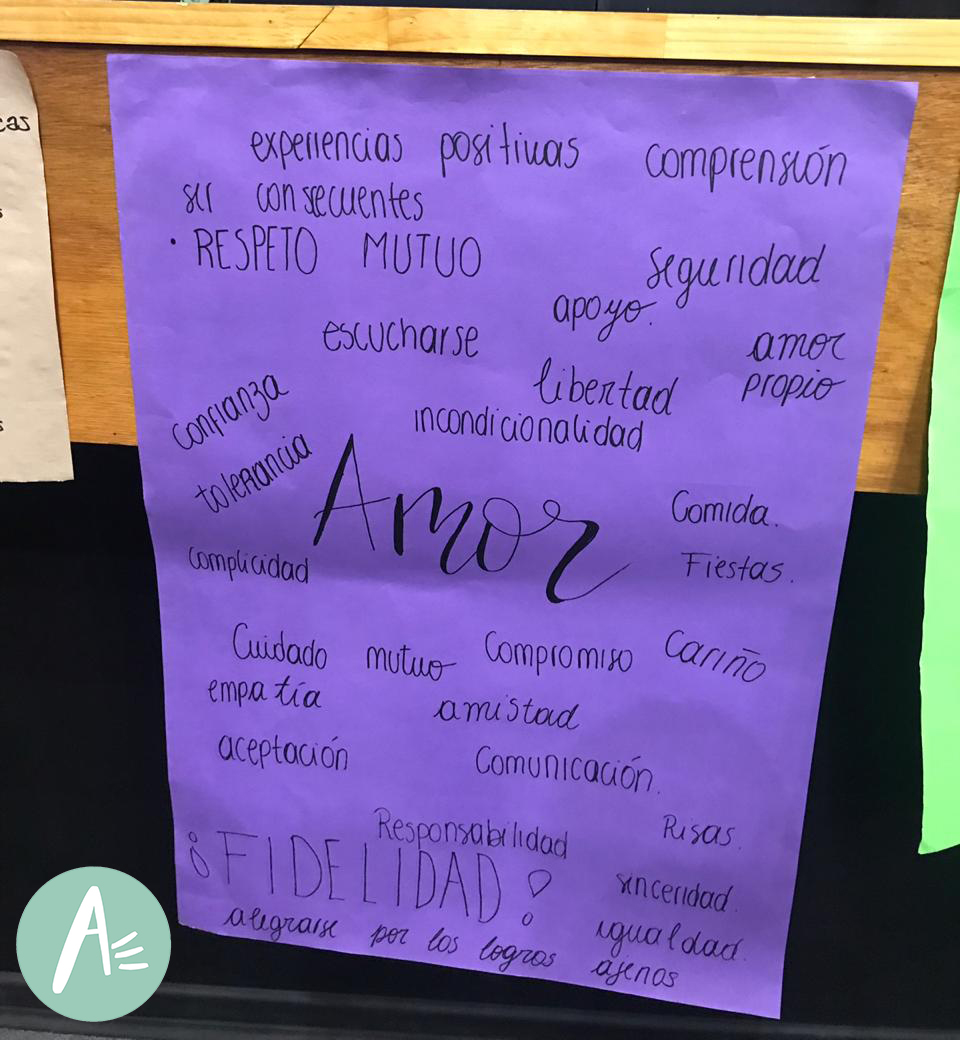 cas
experiencias positivas comprensión
ser consecuentes
· RESPETO MUTUO
seguridad
apoyo.
escucharse
amor
propio
libertad
incondicionalidad
confianza
tolerancia
Amor
Comida.
Fiestas.
complicidad
Cuidado mutuo Compromiso Cariño
empatía
amistad
aceptación
Comunicación.
Responsabilidad
Risas.
¡FIDELIDAD!
sinceridad.
igualdad.
alegrarse por los logros ajenos
A